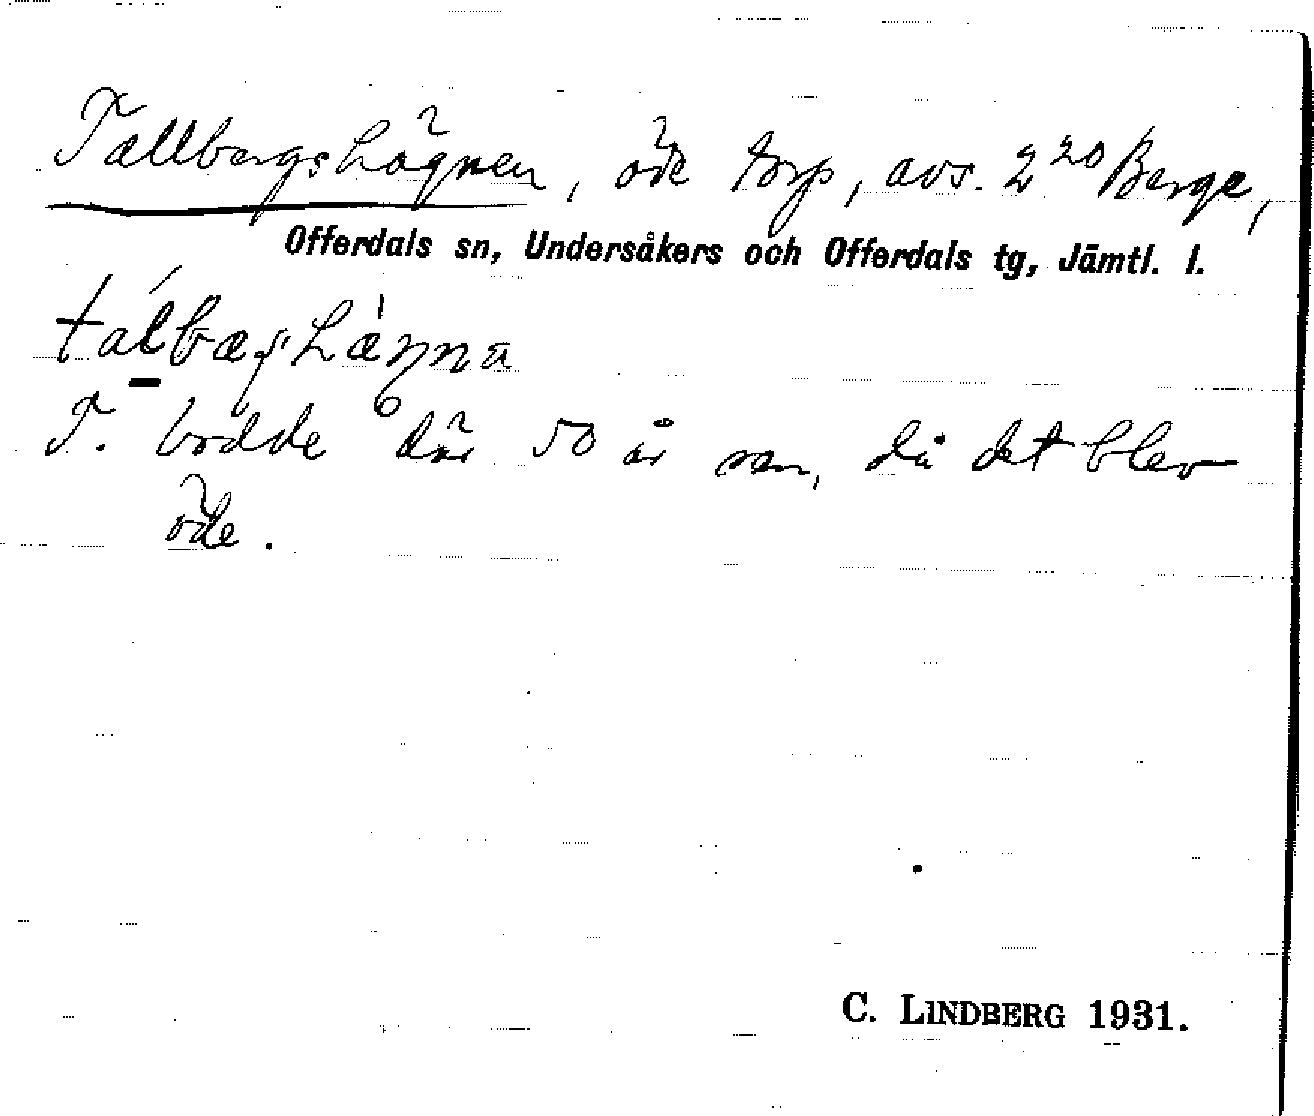 Tallbergshägnen, öde torp, avs. 2²⁰ Berge,
Offerdals sn, Undersåkers och Offerdals tg, Jämtl. l.
T. bodde där 50 år sen, då det blev
öde.
C. LINDBERG 1931.